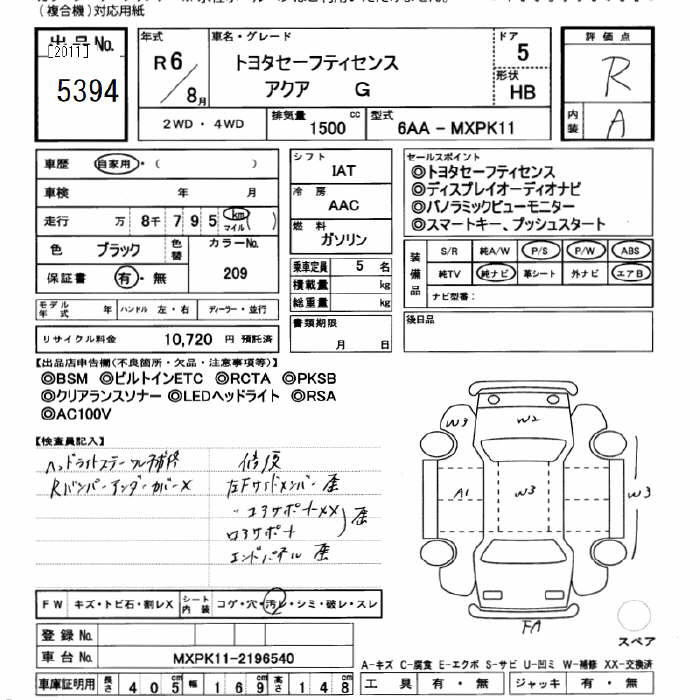 (複合機)対応用紙
出品No.
[2011]
5394
年式
R6/8月
車名・グレード
トヨタセーフティセンス
アクア G
ドア
5
形状
HB
評価点
R
内装
A
2WD・4WD
排気量
1500 cc
型式
6AA-MXPK11
車歴 自家用・( )
車検 年 月
走行 万 8千 7 9 5 km マイル ( )
色 ブラック 色替
カラーNo.
209
保証書 有・無
モデル年式 年 ハンドル 左・右 ディーラー・並行
リサイクル料金 10,720 円 預託済
シフト
IAT
冷房
AAC
燃料
ガソリン
乗車定員 5 名
積載量 kg
総重量 kg
書類期限
月 日
セールスポイント
◎トヨタセーフティセンス
◎ディスプレイオーディオナビ
◎パノラミックビューモニター
◎スマートキー、プッシュスタート
装備品
S/R 純A/W P/S P/W ABS
純TV 純ナビ 革シート 外ナビ エアB
ナビ型番:
後日品
【出品店申告欄(不良箇所・欠品・注意事項等)】
◎BSM ◎ビルトインETC ◎RCTA ◎PKSB
◎クリアランスソナー ◎LEDヘッドライト ◎RSA
◎AC100V
【検査員記入】
ヘッドライトステー
RバンパーアンダーカバーX
修復
左Fサイドメンバー
コアサポートXX
ロアサポート
エンドパネル
W3
W2
A1
W3
W3
FA
スペア
FW キズ・トビ石・割レX シート内装 コゲ・穴・汚レ・シミ・破レ・スレ
登録No.
車台No. MXPK11-2196540
車庫証明用 長さ 405cm 幅 169cm 高さ 148cm
A-キズ C-腐食 E-エクボ S-サビ U-凹ミ W-補修 XX-交換済
工具 有・無 ジャッキ 有・無